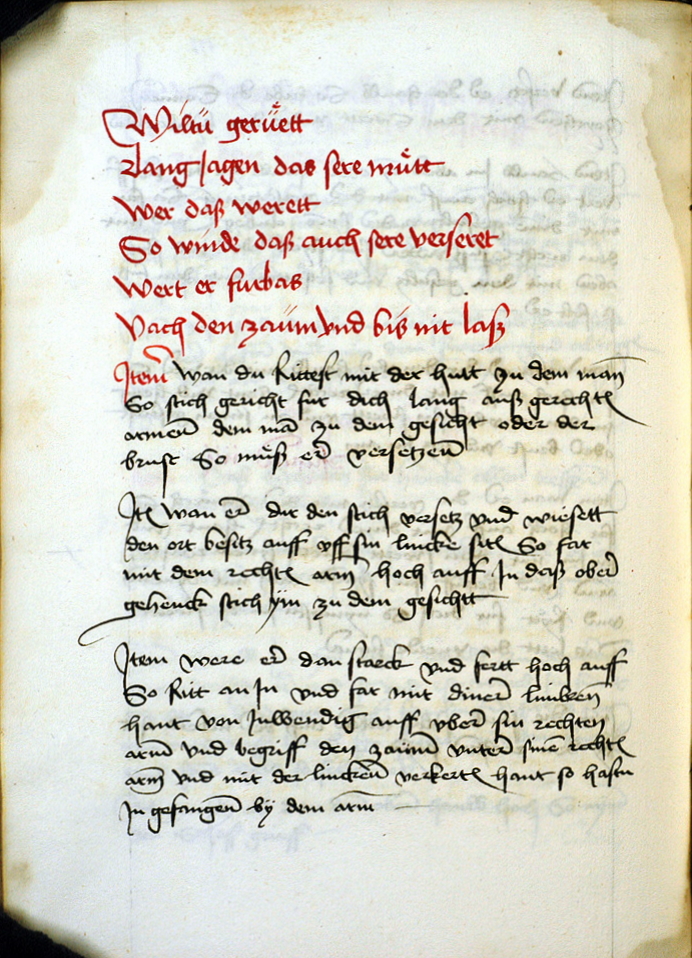 Wiltu gerüett
Lang Jagen das sere mütt
Wer daß werett
So winde daß auch sere verseret
Wert er furbas
Nach den zaüm vnd bis nit laß
Item wan du Rittest mit der hutt zu dem man
So stich gericht fur dich lang auß gerechtē
armen dem mā zu dem gesicht oder der
brust So müß er versetzen
Itē wan er dir den stich versetz vnd wiesett
den ort besitz auff vff sin lincke sitē So far
mit dem rechtē arm hoch auff In daß ober
gehenck stich yin zu dem gesichtt
Item were er dan starck vnd fertt hoch auff
So Ritt an In vnd far mit diner lincken
hant von Inwendig auff vber sin rechten
arm vnd begriff den zaüm vnter sinē rechtē
arm vnd mit der lincken verkertē hant so hastu
In gefangen by dem arm